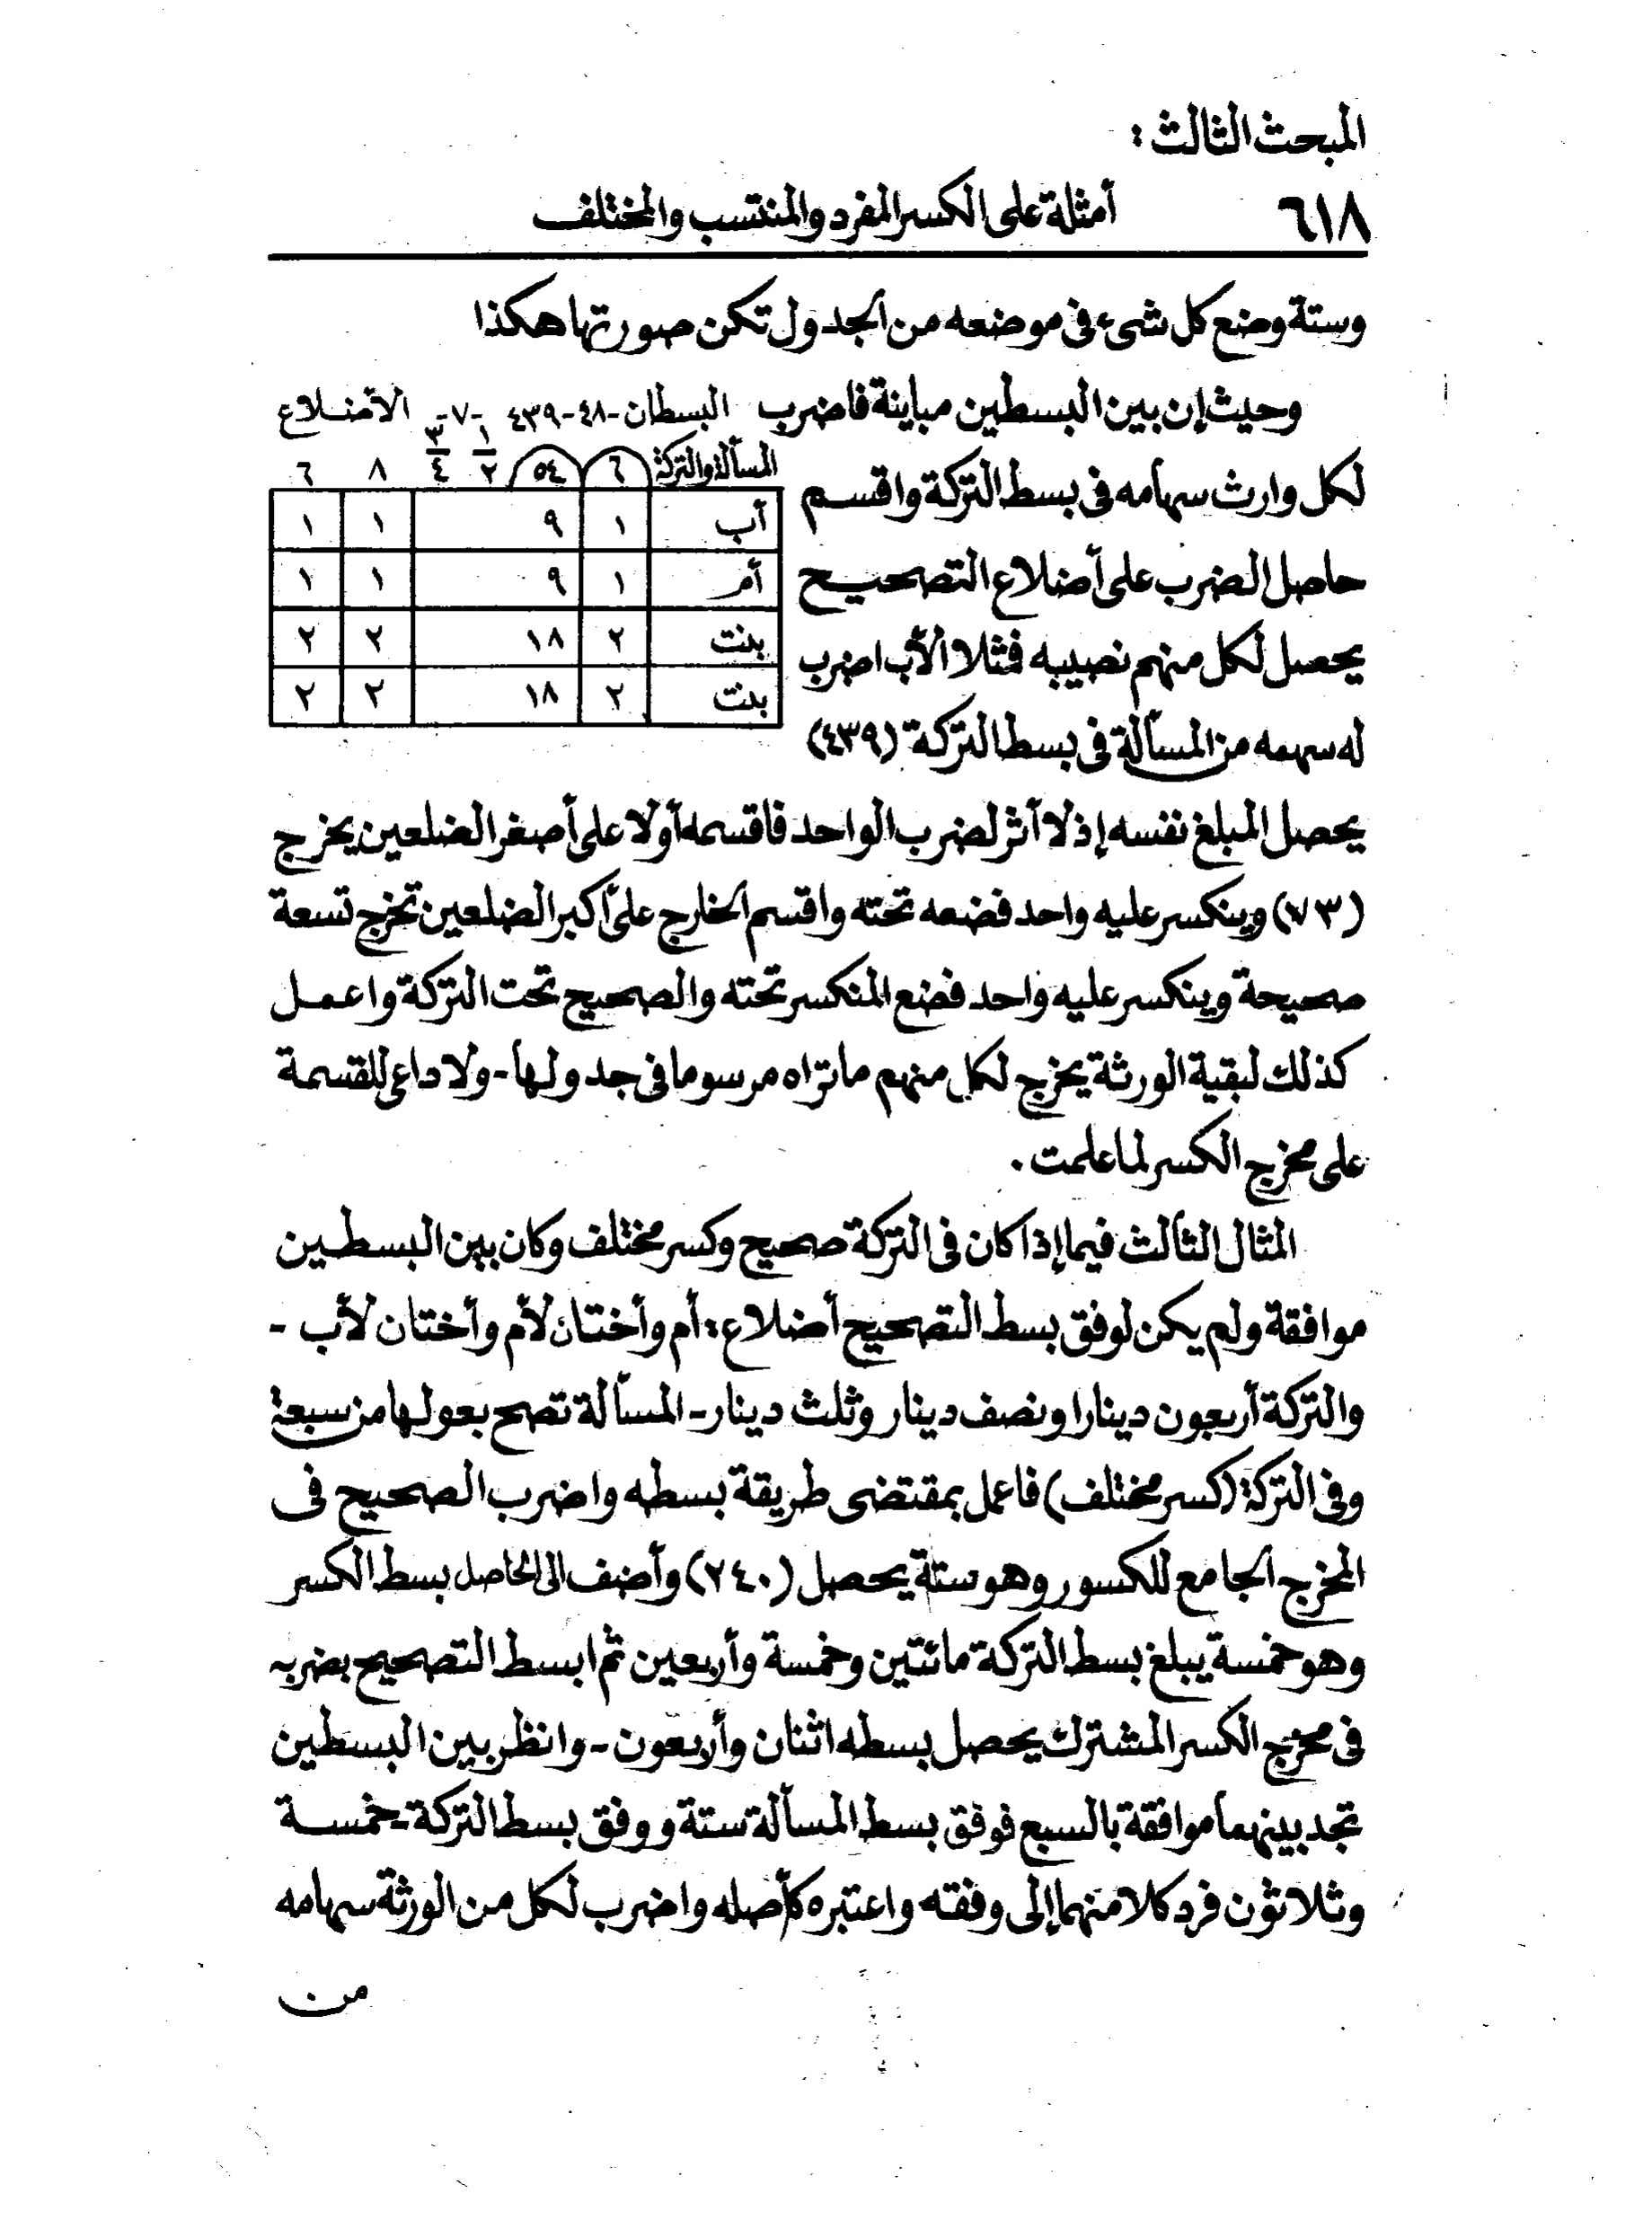 المبحث الثالث :
٦١٨ أمثلة على الكسر المفرد والمنتسب والمختلف
وستة وضع كل شىء فى موضعه من الجدول تكن صورتها هكذا
وحيث إن بين البسطين مباينة فاضرب
لكل وارث سهامه فى بسط التركة واقسم
حاصل الضرب على أضلاع التصحيح
يحصل لكل منهم نصيبه فمثلا الأب اضرب
له سهمه من المسألة فى بسط التركة (٤٣٩)
البسطان -٤٨-٤٣٩ -٧- الأضلاع
المسألة والتركة ٦ ٥٤ ١/٢ ٣/٤ ٨ ٦
أب ١ ٩ ١ ١
أم ١ ٩ ١ ١
بنت ٢ ١٨ ٢ ٢
بنت ٢ ١٨ ٢ ٢
يحصل المبلغ نفسه إذ لا أثر لضرب الواحد فاقسمه أولا على أصغر الضلعين يخرج
(٧٣) وينكسر عليه واحد فضعه تحته واقسم الخارج على أكبر الضلعين تخرج تسعة
صحيحة وينكسر عليه واحد فضع المنكسر تحته والصحيح تحت التركة واعمل
كذلك لبقية الورثة يخرج لكل منهم ما تراه مرسوما فى جدولها - ولا داعى للقسمة
على مخرج الكسر لما علمت .
المثال الثالث فيما إذا كان فى التركة صحيح وكسر مختلف وكان بين البسطين
موافقة ولم يكن لوفق بسط التصحيح أضلاع : أم وأختان لأم وأختان لأب -
والتركة أربعون دينارا ونصف دينار وثلث دينار - المسألة تصح بعولها من سبعة
وفى التركة (كسر مختلف) فاعمل بمقتضى طريقة بسطه واضرب الصحيح فى
المخرج الجامع للكسور وهو ستة يحصل (٢٤٠) وأضف الى الحاصل بسط الكسر
وهو خمسة يبلغ بسط التركة مائتين وخمسة وأربعين ثم ابسط التصحيح بضربه
فى مخرج الكسر المشترك يحصل بسطه اثنان وأربعون - وانظر بين البسطين
تجد بينهما موافقة بالسبع فوفق بسط المسألة ستة ووفق بسط التركة - خمسة
وثلاثون فرد كلا منهما إلى وفقه واعتبره كأصله واضرب لكل من الورثة سهامه
من